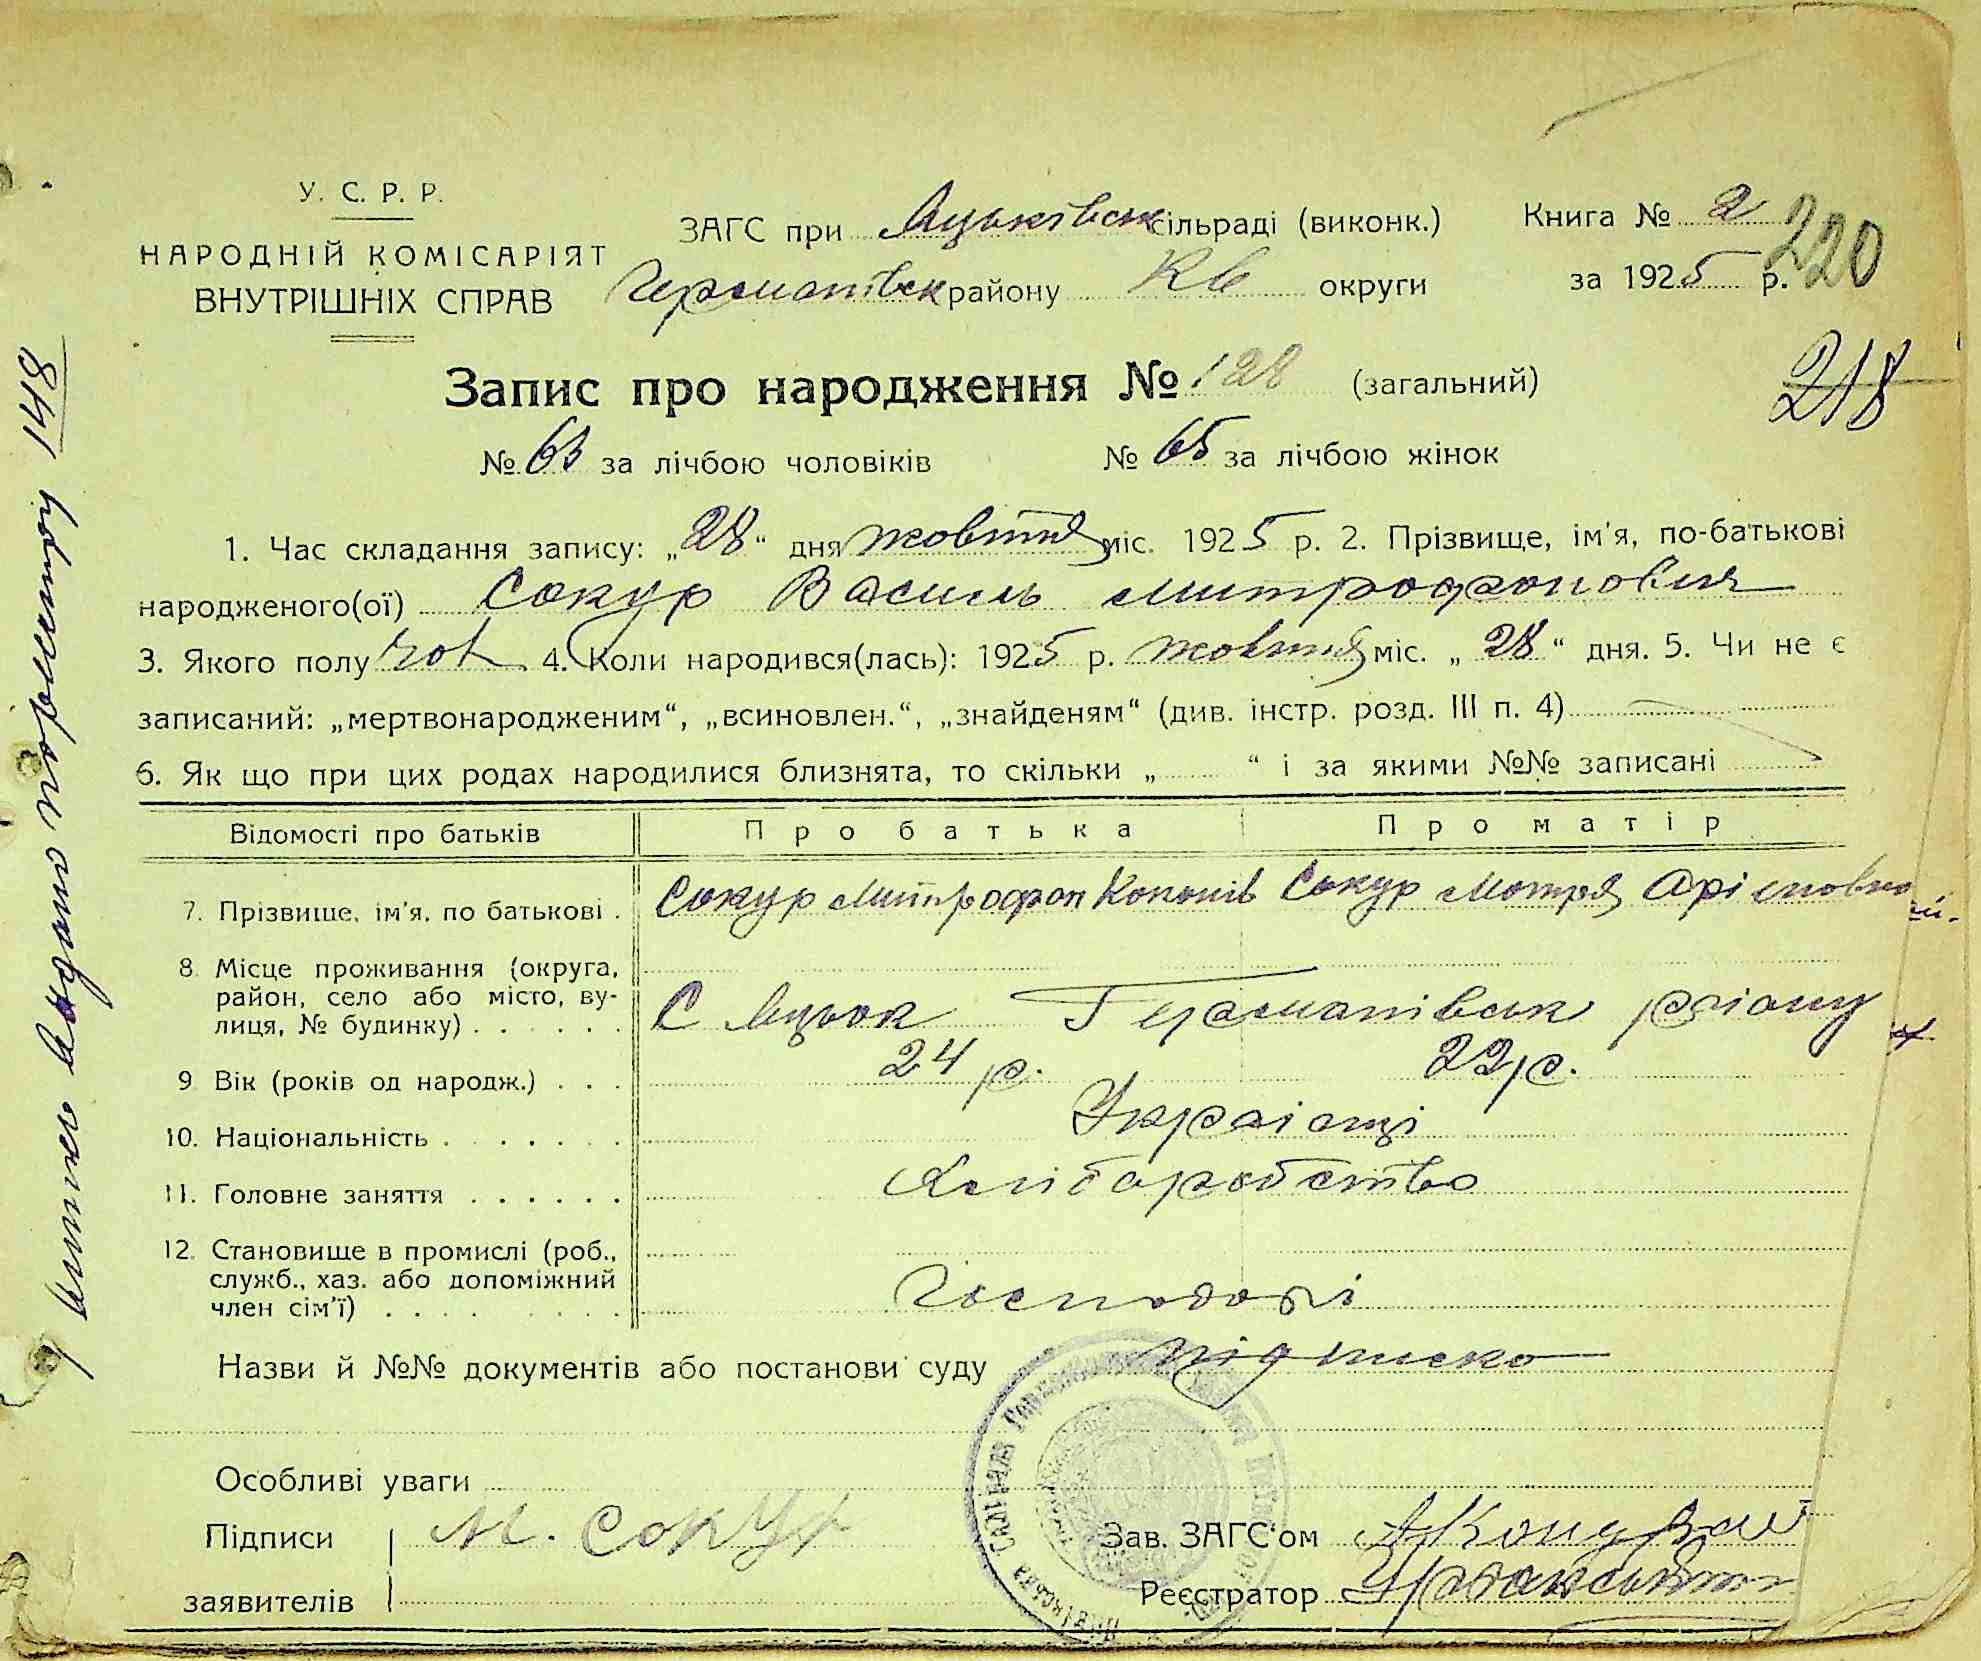 У. С. Р. Р.
НАРОДНІЙ КОМІСАРІЯТ
ВНУТРІШНІХ СПРАВ
ЗАГС при Яцьківськ сільраді (виконк.)
Германівськ району Кв округи
Книга № 2
за 1925 р.
220
218
Запис про народження № 128 (загальний)
№ 63 за лічбою чоловіків № 65 за лічбою жінок
1. Час складання запису: „28“ дня жовтня міс. 1925 р. 2. Прізвище, ім'я, по-батькові
народженого(ої) Сокур Василь Митрофонович
3. Якого полу чол 4. Коли народився(лась): 1925 р. жовтня міс. „28“ дня. 5. Чи не є
записаний: „мертвонародженим“, „всиновлен.“, „знайденям“ (див. інстр. розд. III п. 4)
6. Як що при цих родах народилися близнята, то скільки „ “ і за якими №№ записані
Відомості про батьків Про батька Про матір
7. Прізвище, ім'я, по батькові . Сокур Митрофон Кононів Сокур Мотря
8. Місце проживання (округа,
район, село або місто, ву-
лиця, № будинку) . . . . . . С Яцьок Германівськ району
9. Вік (років од народж.) . . . 24 р. 22 р.
10. Національність . . . . . . . Українці
11. Головне заняття . . . . . . Хліборобство
12. Становище в промислі (роб.,
служб., хаз. або допоміжний
член сім'ї) . . . . . . . . . Господарі
Назви й №№ документів або постанови суду підписка
Особливі уваги
Підписи М. Сокур
заявителів
Зав. ЗАГС'ом
Реєстратор
148